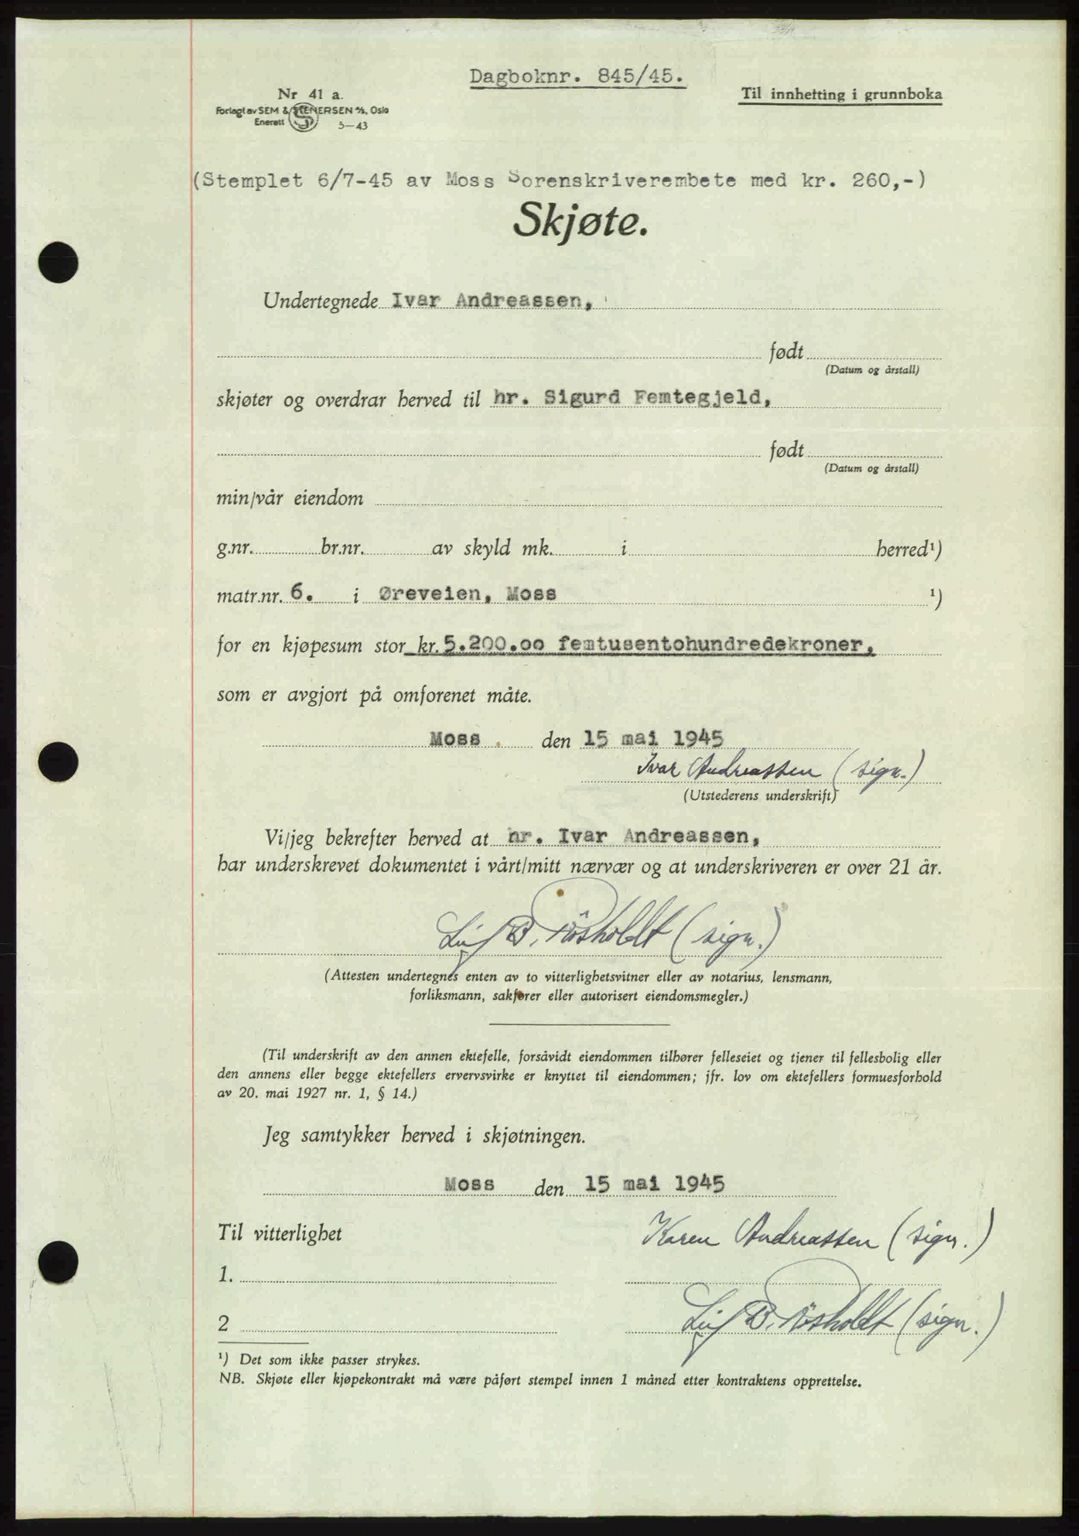 Dagboknr. 845/45.
Nr 41 a.
Forlagt av SEM & STENERSEN A/S, Oslo
Enerett 5—43
Til innhefting i grunnboka
(Stemplet 6/7-45 av Moss Sorenskriverembete med kr. 260,-)
Skjøte.
Undertegnede Ivar Andreassen,
født
(Datum og årstall)
skjøter og overdrar herved til hr. Sigurd Femtegjeld,
født
(Datum og årstall)
min/vår eiendom
g.nr. br.nr. av skyld mk. i herred¹)
matr.nr. 6. i Øreveien, Moss ¹)
for en kjøpesum stor kr. 5.200.00 femtusentohundredekroner,
som er avgjort på omforenet måte.
Moss . den 15 mai 1945
Ivar Andreassen (sign.)
(Utstederens underskrift)
Vi/jeg bekrefter herved at hr. Ivar Andreassen,
har underskrevet dokumentet i vårt/mitt nærvær og at underskriveren er over 21 år.
B. (sign.)
(Attesten undertegnes enten av to vitterlighetsvitner eller av notarius, lensmann,
forliksmann, sakfører eller autorisert eiendomsmegler.)
(Til underskrift av den annen ektefelle, forsåvidt eiendommen tilhører felleseiet og tjener til fellesbolig eller
den annens eller begge ektefellers ervervsvirke er knyttet til eiendommen; jfr. lov om ektefellers formuesforhold
av 20. mai 1927 nr. 1, § 14.)
Jeg samtykker herved i skjøtningen.
Moss den 15 mai 1945
Til vitterlighet Karen Andreassen (sign.)
1.
2 B. (sign.)
¹) Det som ikke passer strykes.
NB. Skjøte eller kjøpekontrakt må være påført stempel innen 1 måned etter kontraktens opprettelse.